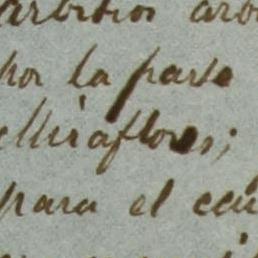 arbitrios arb
por la parte
Miraflores;
para el cau